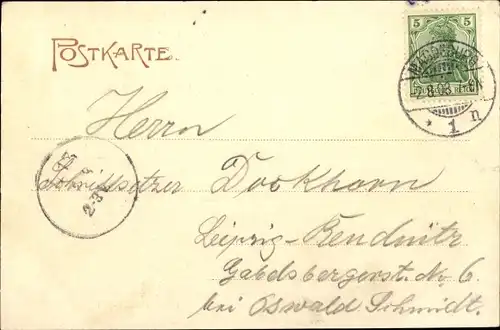 POSTKARTE.
5
DEUTSCHES REICH
2.8.03
* 1 n
Herrn
Schriftsetzer Dockhorn
Leipzig-Reudnitz
Gabelsbergerst. No 6.
bei Oswald Schmidt.